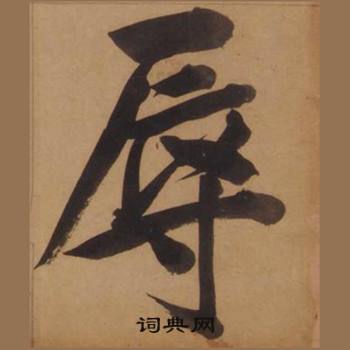 辱
词典网